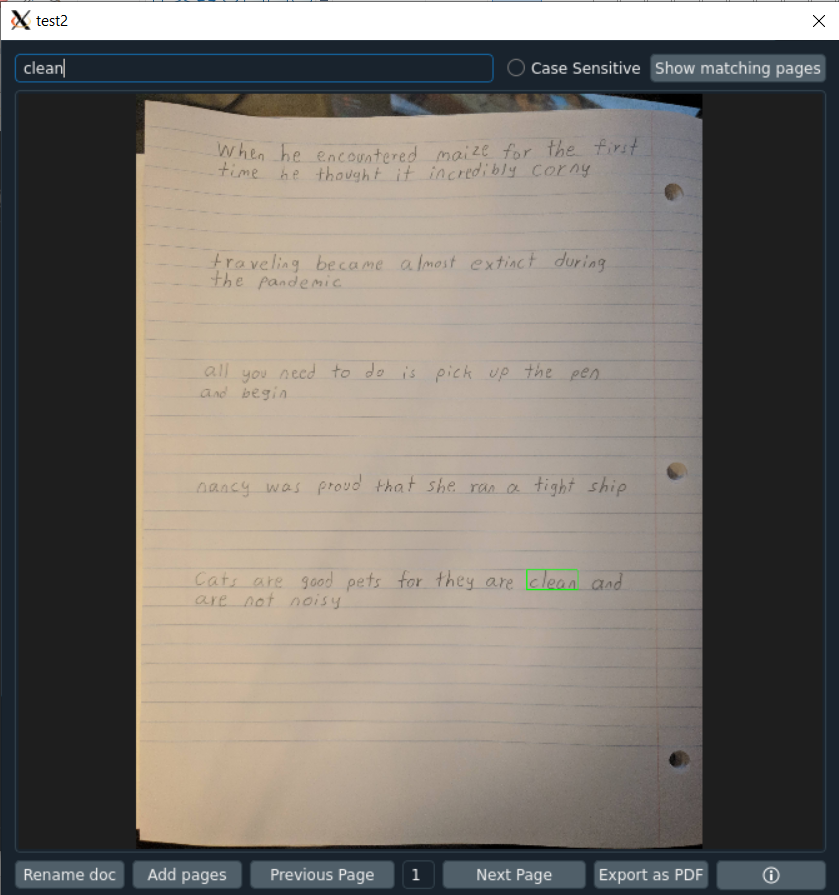 test2
clean
Case Sensitive
Show matching pages
When he encountered maize for the first
time he thought it incredibly corny
traveling became almost extinct during
the pandemic
all you need to do is pick up the pen
and begin
nancy was proud that she ran a tight ship
Cats are good pets for they are clean and
are not noisy
Rename doc
Add pages
Previous Page
1
Next Page
Export as PDF